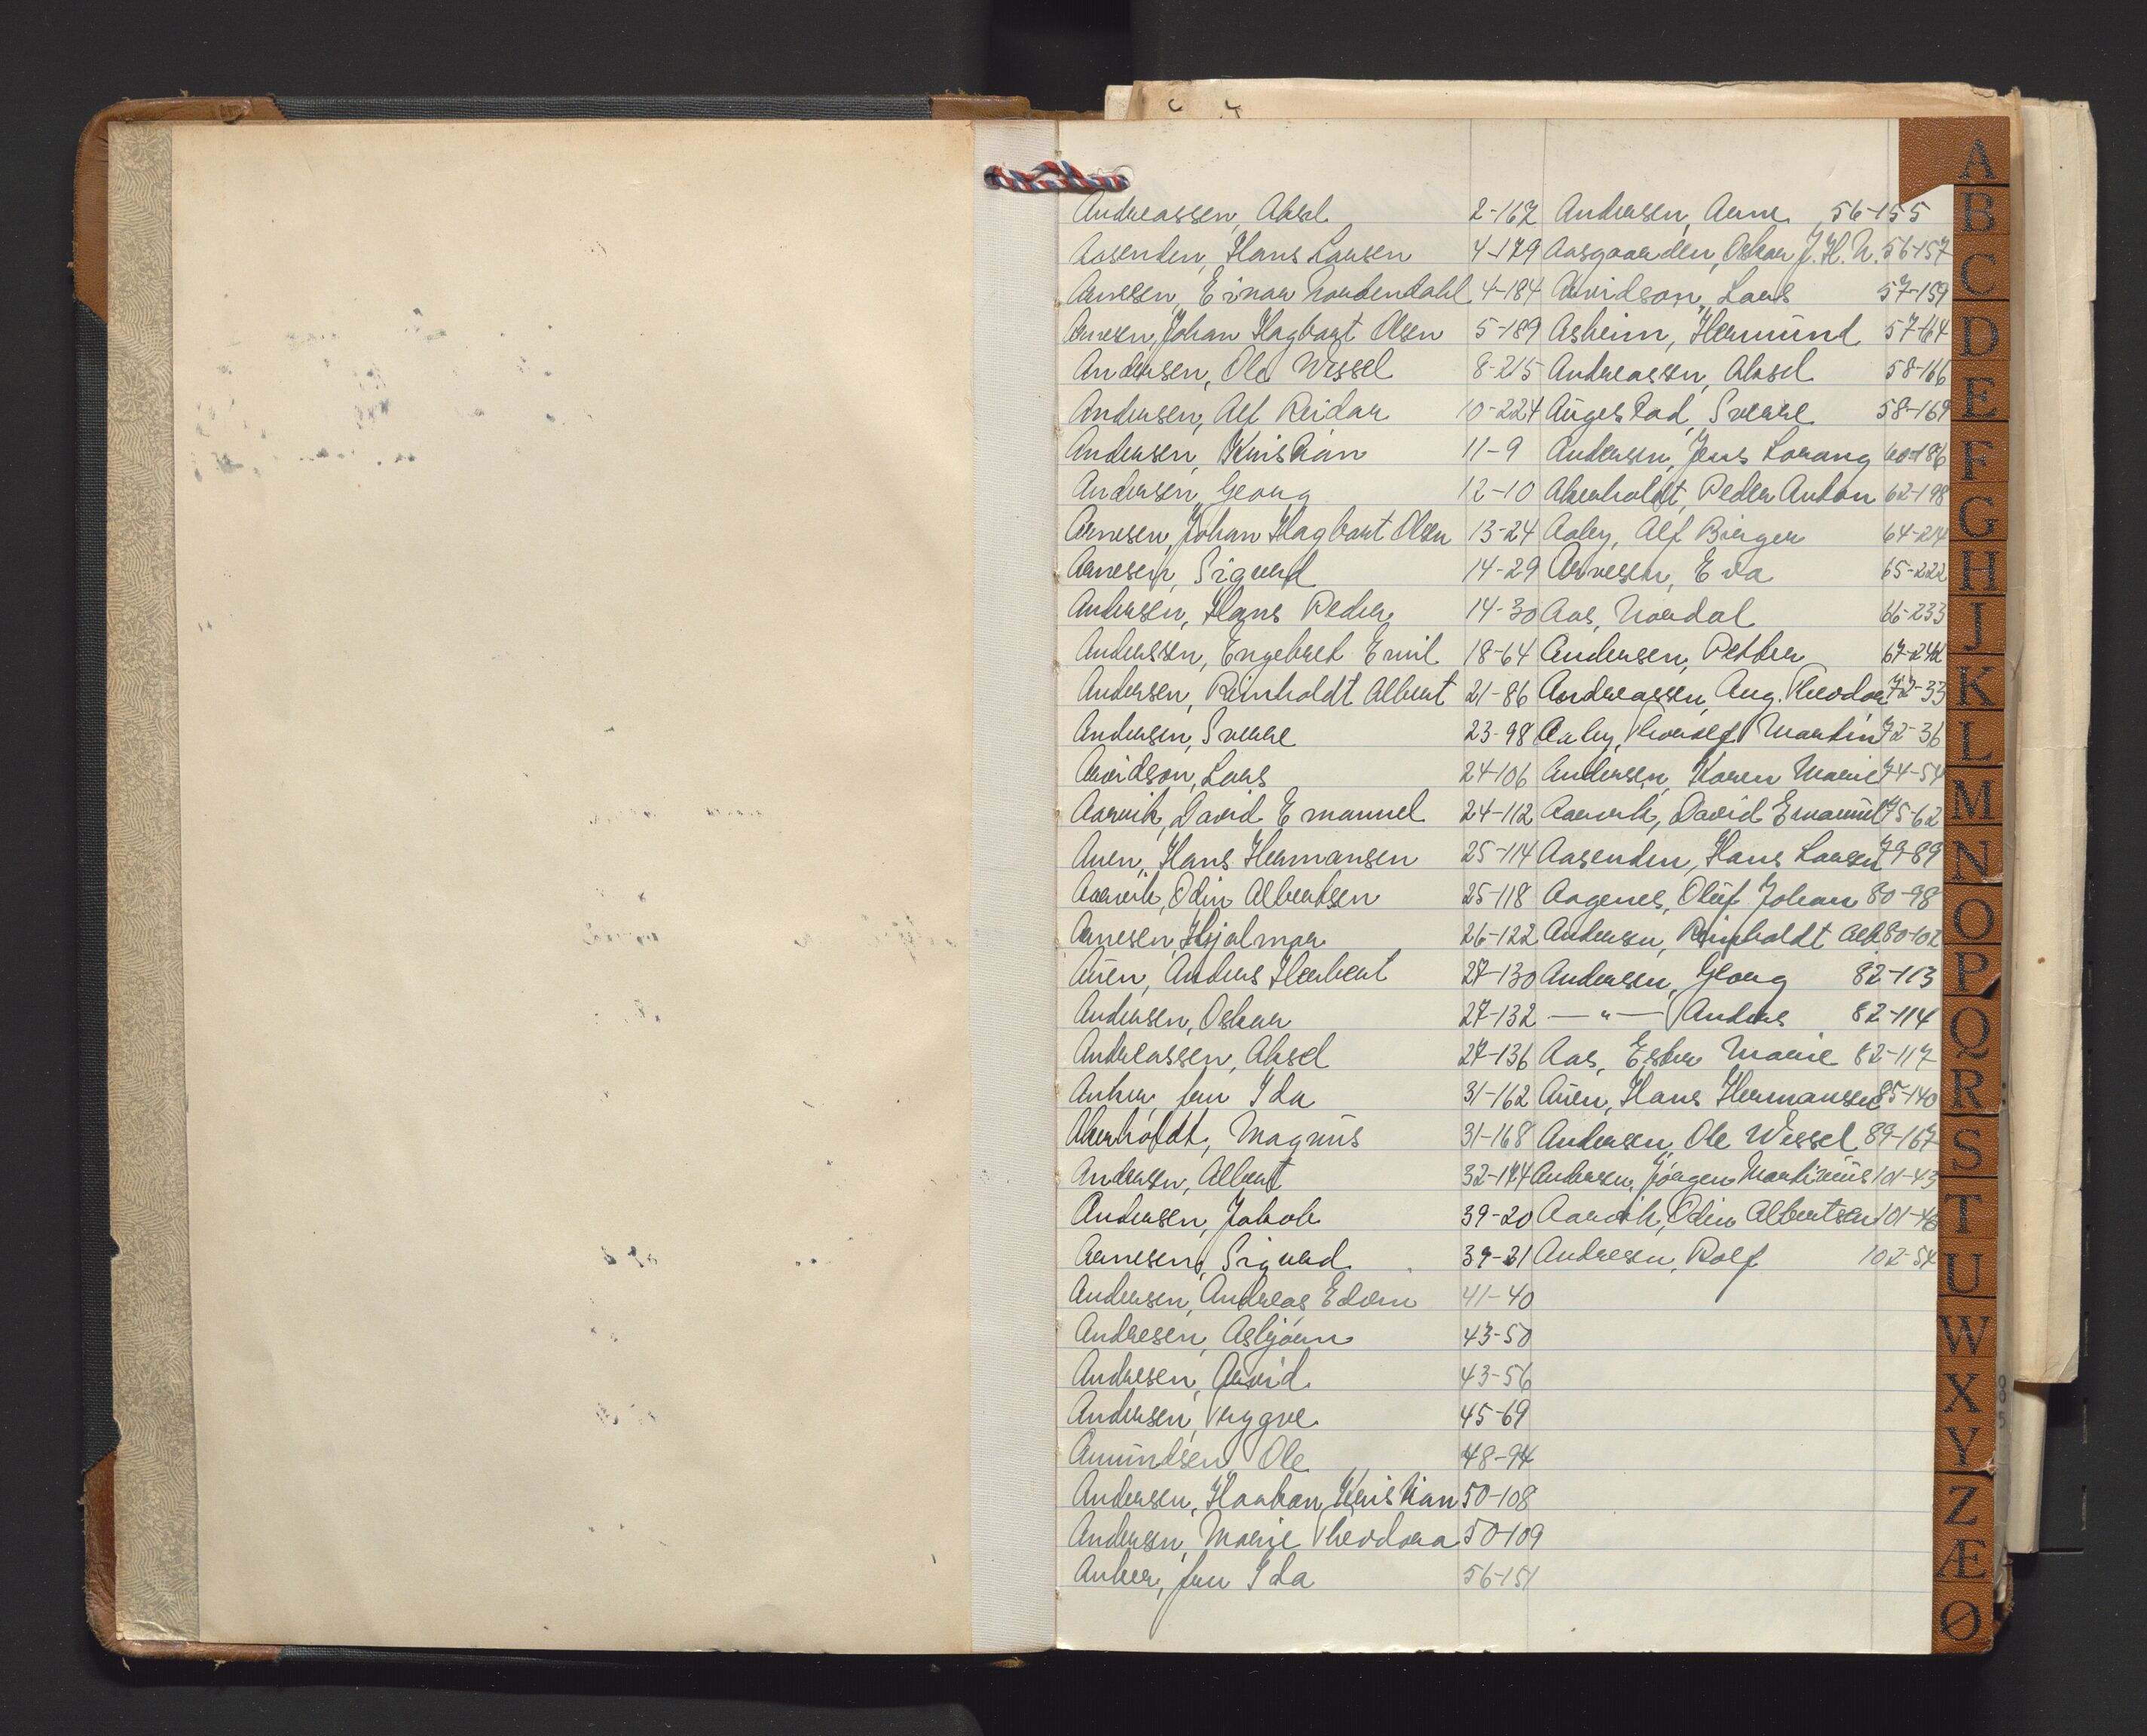 Andreassen, Aksel 2-167
Aasenden, Hans Larsen 4-179
Arnesen, Einar Nordendahl 4-184
Arnesen, Johan Hagbart Olsen 5-189
Andersen, Ole Wessel 8-215
Andersen, Alf Reidar 10-224
Andersen, Kristian 11-9
Andersen, Georg 12-10
Arnesen, Johan Hagbart Olsen 13-24
Arnesen, Sigurd 14-29
Andersen, Hans Peder 14-30
Anderssen, Engebret Emil 18-64
Andersen, Reinholdt Albert 21-86
Andersen, Sverre 23-98
Arvidson, Lars 24-106
Aarvik, David Emanuel 24-112
Auen, Hans Hermansen 25-114
Aarvik, Odin Albertsen 25-118
Arnesen, Hjalmar 26-122
Auen, Anders Herbert 27-130
Andersen, Oskar 27-132
Andreassen, Aksel 27-136
Anker, fru Ida 31-162
Akerholdt, Magnus 31-168
Andersen, Albert 32-174
Andersen, Jakob 39-20
Arnesen, Sigurd 39-21
Andersen, Andreas Edvin 41-40
Andresen, Asbjörn 43-50
Andresen, Arvid 43-56
Andersen, Trygve 45-69
Amundsen, Ole 48-94
Andersen, Haakon Kristian 50-108
Andersen, Marie Theodora 50-109
Anker, fru Ida 56-151
Andersen, Arne 56-155
Aasgaarden, Oskar J. H. N. 56-157
Arvidson, Lars 57-159
Asheim, Hermund 57-164
Andreassen, Aksel 58-166
Augestad, Sverre 58-169
Andersen, Jens Lorang 60-186
Akerholdt, Peder Anton 62-198
Aaby, Alf Birger 64-214
Arvesen, Eva 65-222
Aas, Nordal 66-233
Andersen, Petter 67-242
Andreassen, Aug. Theodor 72-33
Aaby, Thorolf Martin 72-36
Andersen, Karen Marie 74-54
Aarvik, David Emanuel 75-62
Aasenden, Hans Larsen 79-89
Aagenes, Oluf Johan 80-98
Andersen, Reinholdt Alb. 80-102
Andersen, Georg 82-113
— " — Anders 82-114
Aas, Ester Marie 82-117
Auen, Hans Hermansen 85-140
Andersen, Ole Wessel 89-167
Andersen, Jörgen Martinius 101-43
Aarvik, Odin Albertsen 101-46
Andresen, Rolf 102-54
A
B
C
D
E
F
G
H
J
K
L
M
N
O
P
Q
R
S
T
U
W
X
Y
Z
Æ
Ø